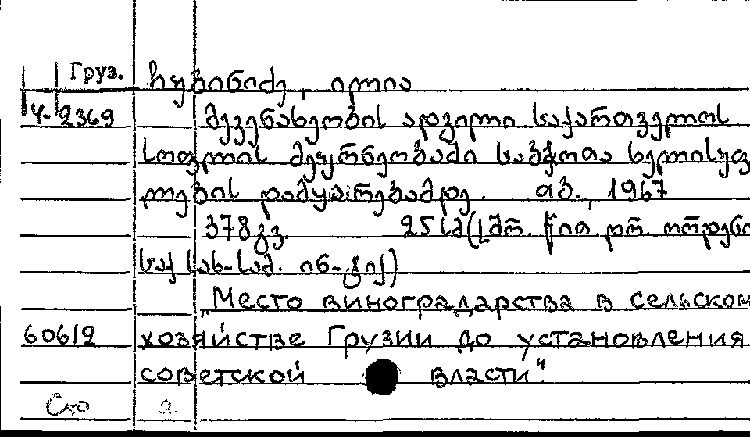 Груз. ჩუბინიძე, ილია
Ч-2369 მევენახეობის ადგილი საქართველოს
სოფლის მეურნეობაში საბჭოთა ხელისუფ
ლების დამყარებამდე. თბ., 1967
378 გვ. 25 სმ (შრ. წით. დრ. ორდენი
საქ. სას-სამ. ინ-ტი)
„Место виноградарства в сельском
60612 хозяйстве Грузии до установления
советской власти".